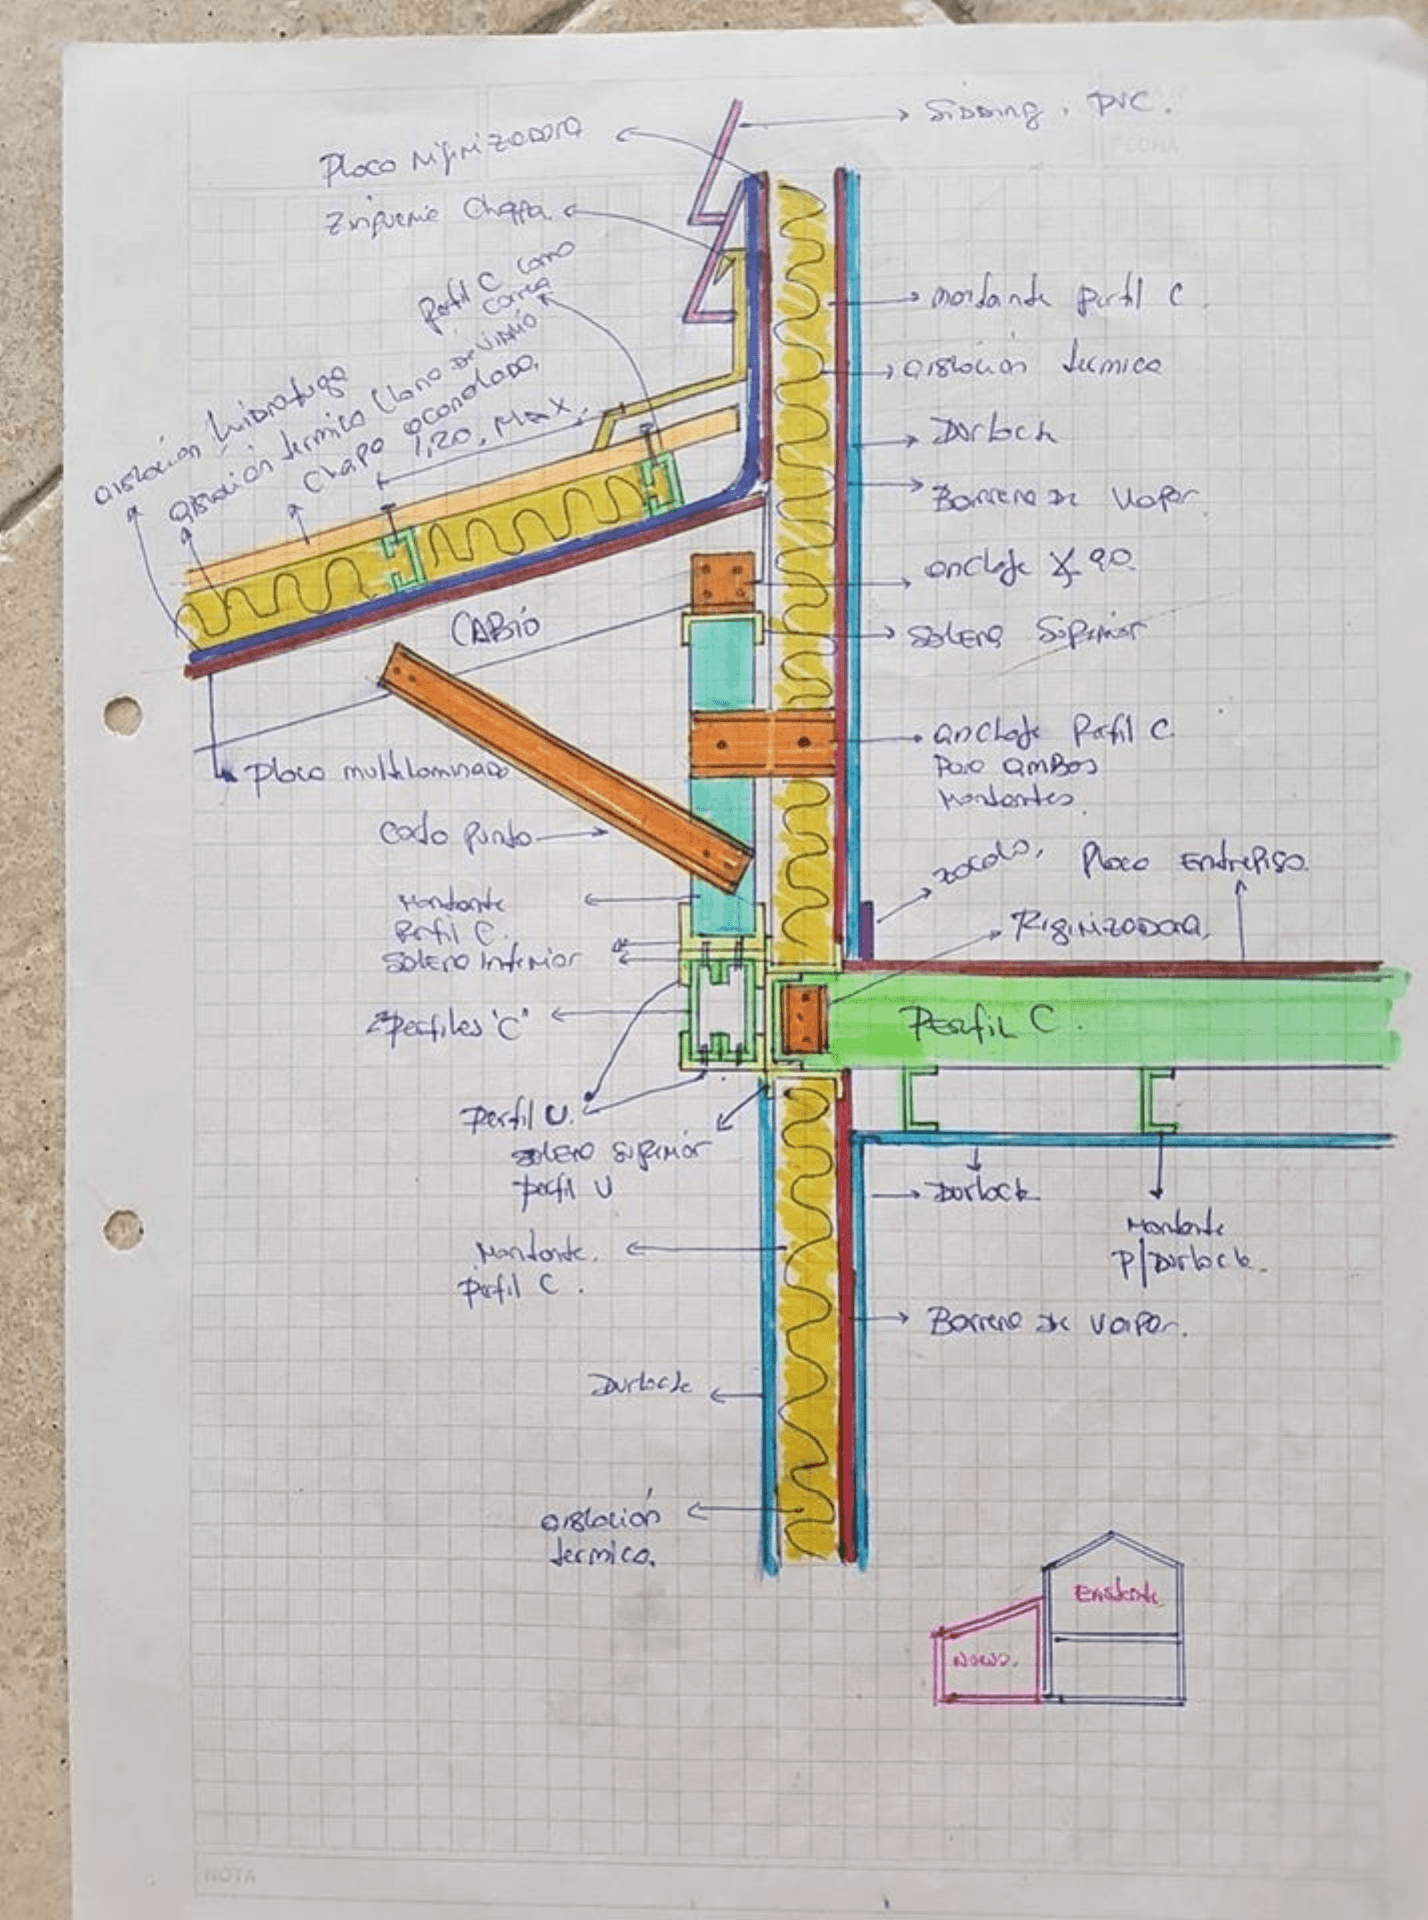 Siding. PVC.
FECHA
Placa rigizadora
Zingueria Chapa.
Perfil C como
correa
aislación hidrofuga
aislación termica (lana de vidrio
Chapa acanalada.
1,20. Max.
montante perfil C
aislación termica
Durlock
Barrera de vapor.
anclaje X 90.
solera superior
CABIO
anclaje Perfil C.
para ambos
Montantes.
Placa multilaminado
Codo punto
zocalo.
Placa Entrepiso.
Rigizadora.
Montante
Perfil C.
solera inferior
2 Perfiles "C"
PERfil C.
Perfil U.
solera superior
perfil U
Durlock
Montante
P/Durlock.
Montante.
Perfil C.
Barrera de vapor.
Durlock
aislación
termica.
Existente
Nuevo.
NOTA